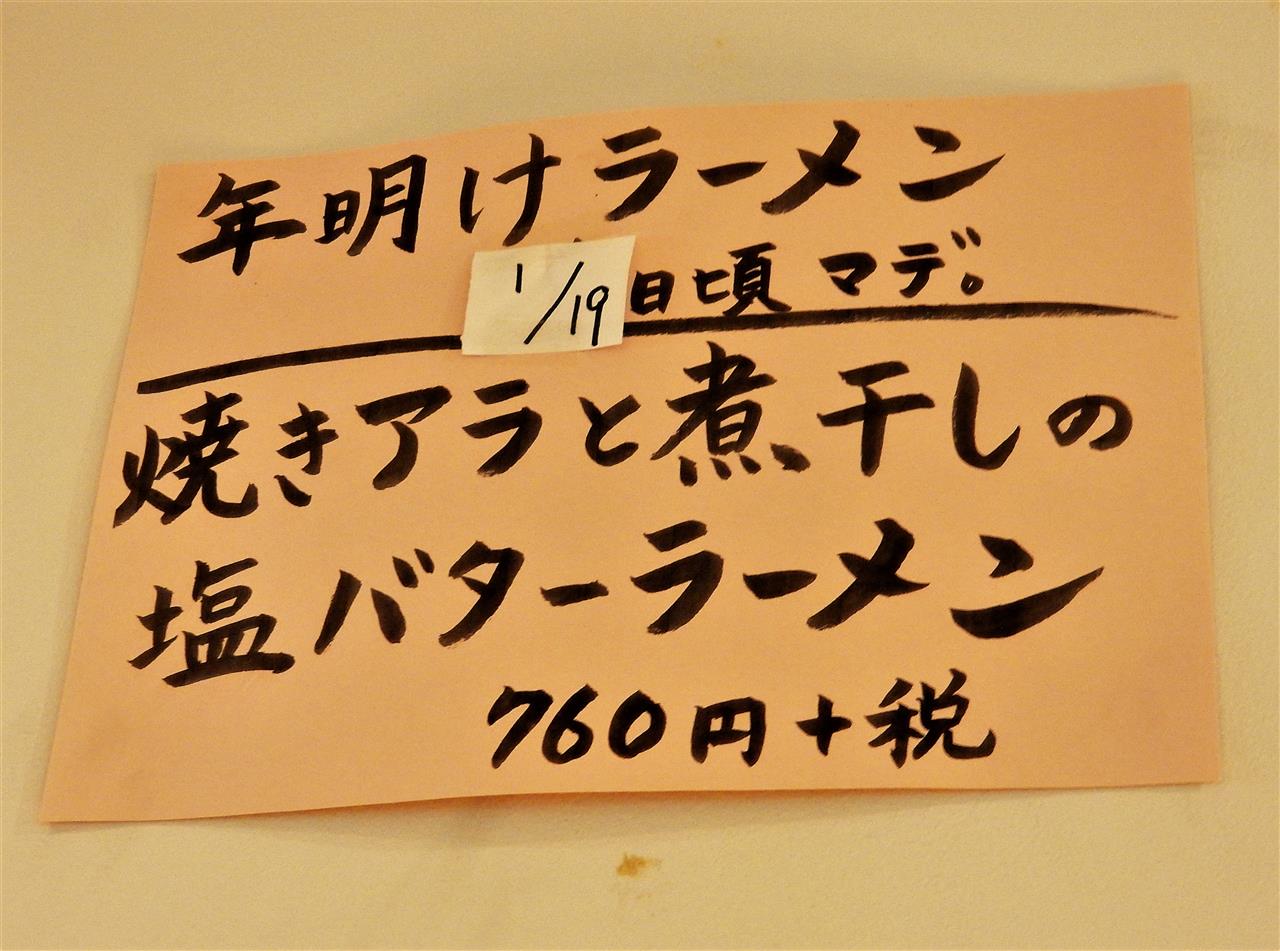 年明けラーメン
1/19日頃マデ。
焼きアラと煮干しの
塩バターラーメン
760円+税